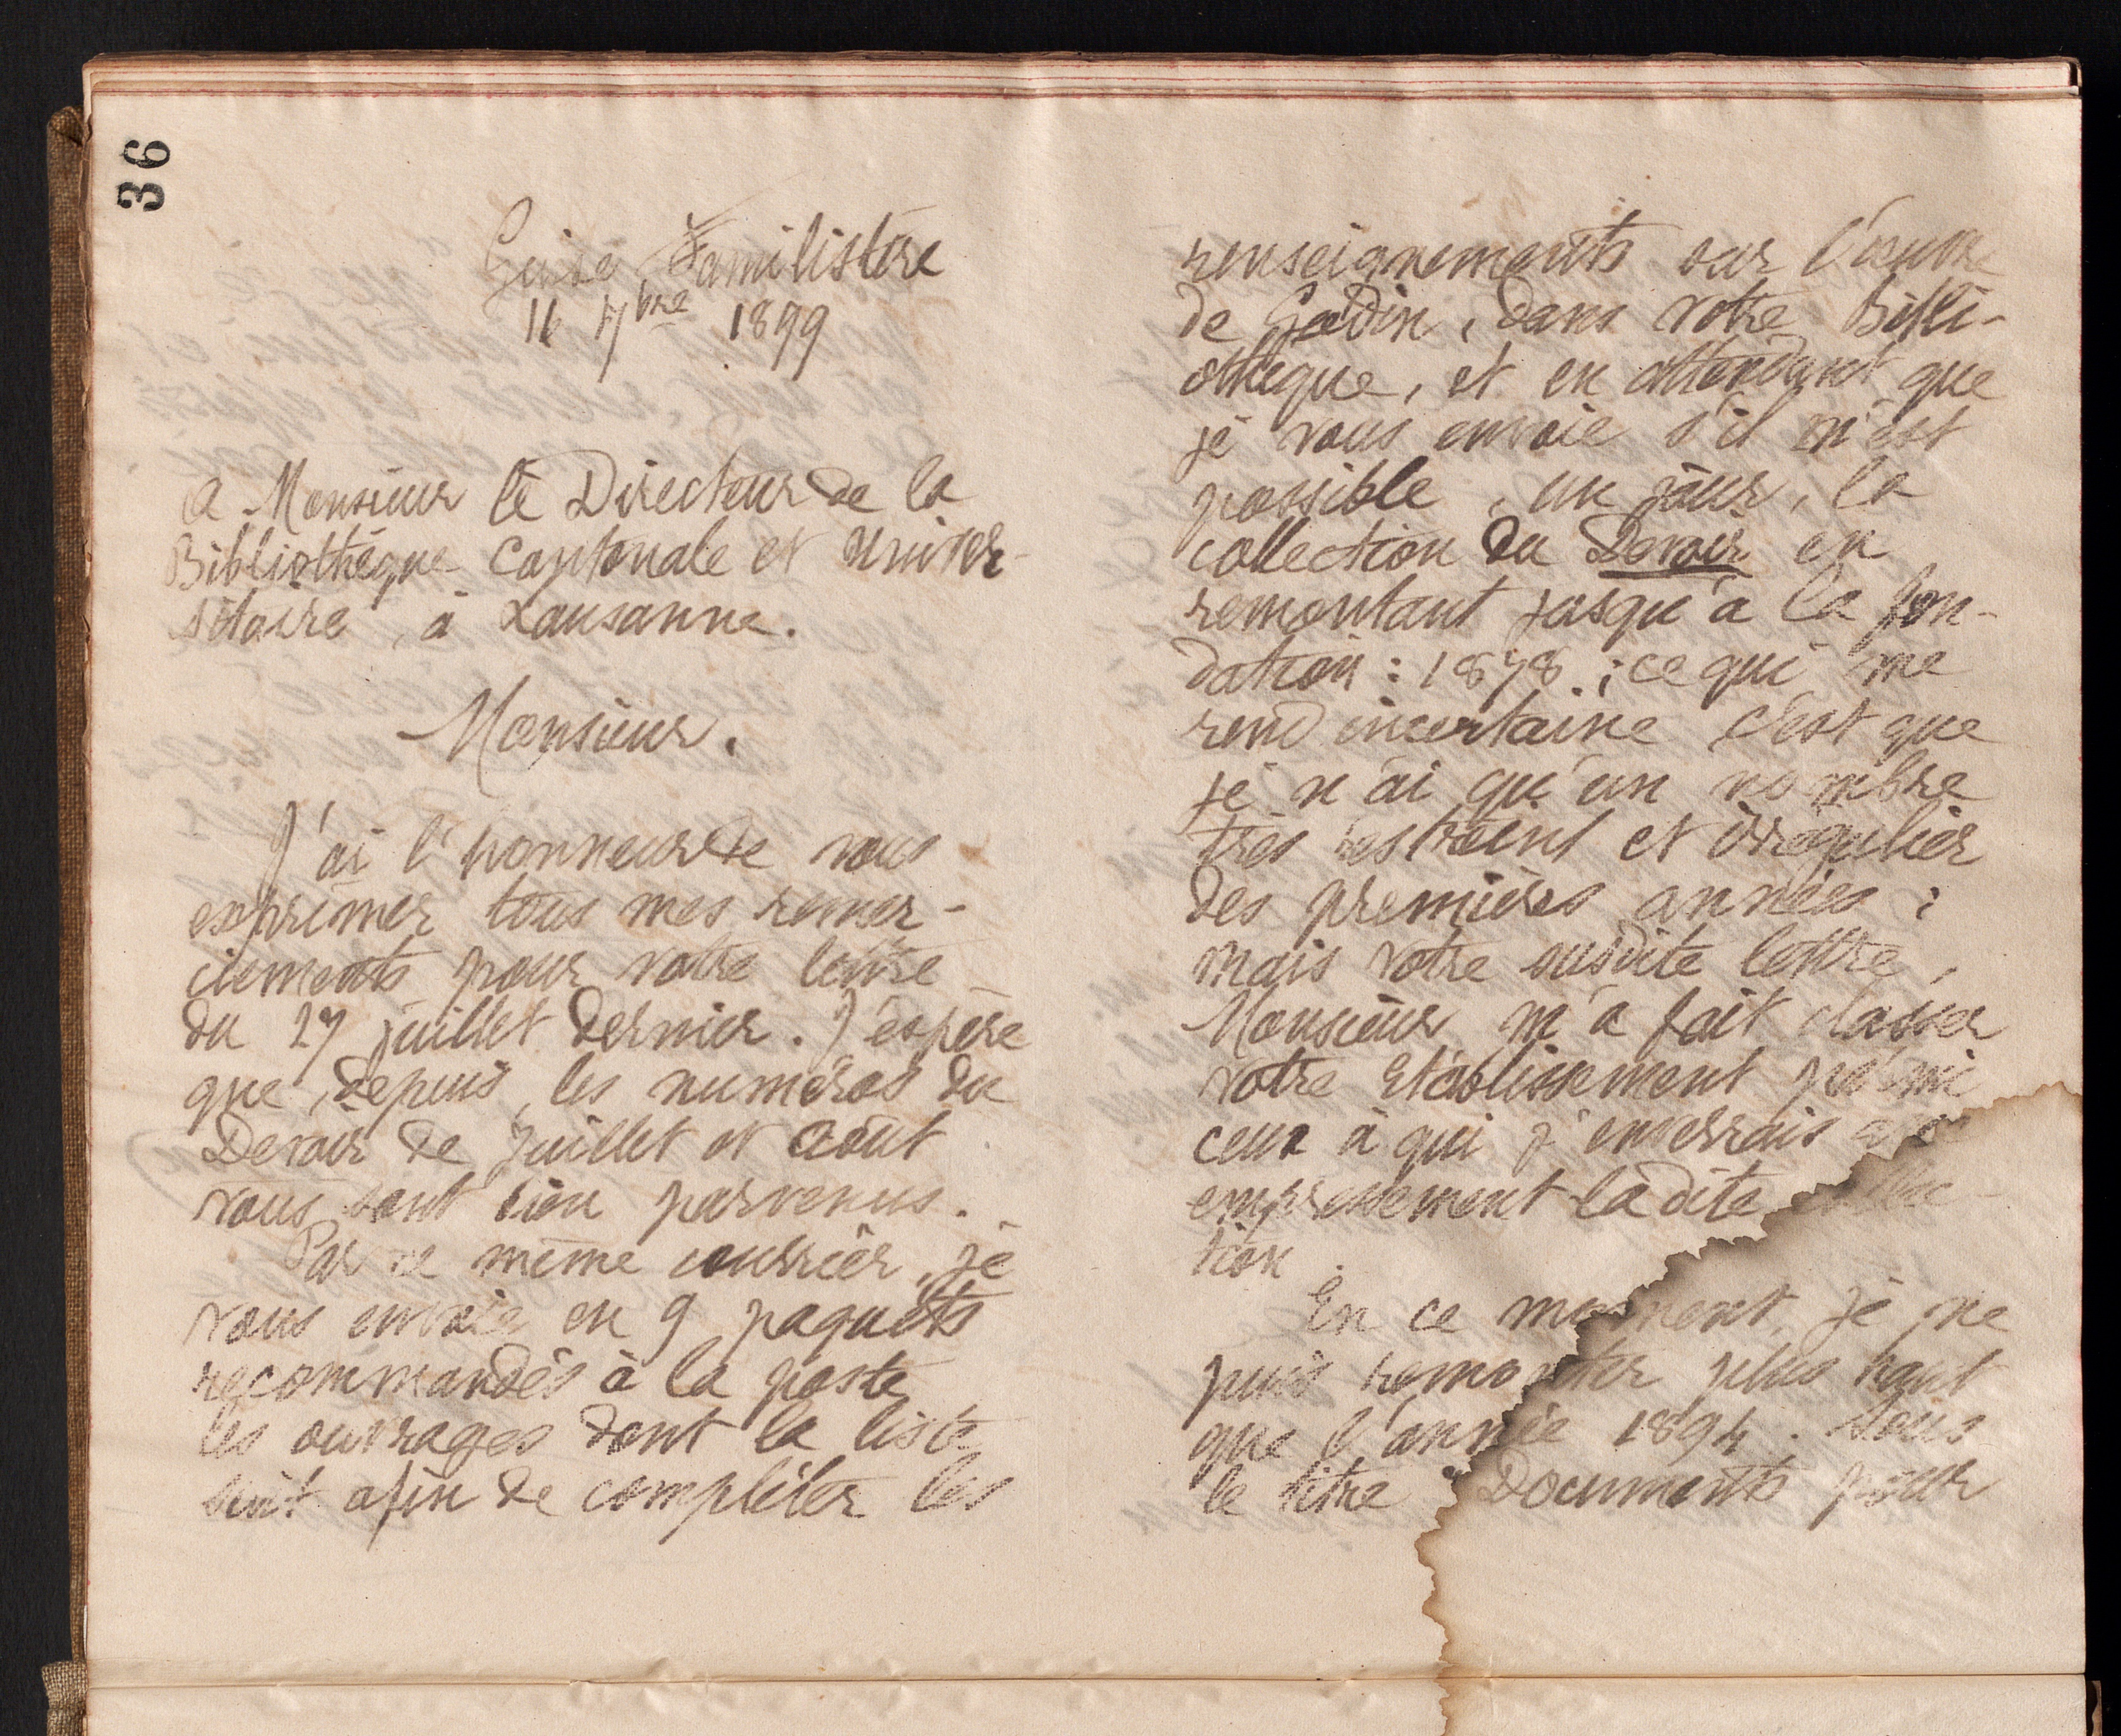 36
Guise Familistère
16 7bre 1899
A Monsieur le Directeur de la
Bibliothèque Cantonale et Univer-
sitaire, à Lausanne.
Monsieur.
J'ai l'honneur de vous
exprimer tous mes remer-
ciements pour votre lettre
du 27 juillet dernier. J'espère
que, depuis, les numéros du
Devoir de Juillet et août
vous sont bien parvenus.
Par ce même courrier, je
vous envoie en 9 paquets
recommandés à la poste
les ouvrages dont la liste
suit afin de compléter les
renseignements sur l'œuvre
de Godin, dans votre Bibli-
othèque, et en attendant que
je vous envoie s'il m'est
possible, un jour, la
collection du Devoir en
remontant jusqu'à la fon-
dation : 1878 ; ce qui me
rend incertaine c'est que
je n'ai qu'un nombre
très restreint et irrégulier
des premières années ;
mais votre susdite lettre,
Monsieur m'a fait classer
votre Etablissement parmi
ceux à qui j'enverrais
empressement la dite
tion.
En ce moment, je ne
puis remonter plus haut
que l'année 1894. Sous
le titre Documents pour